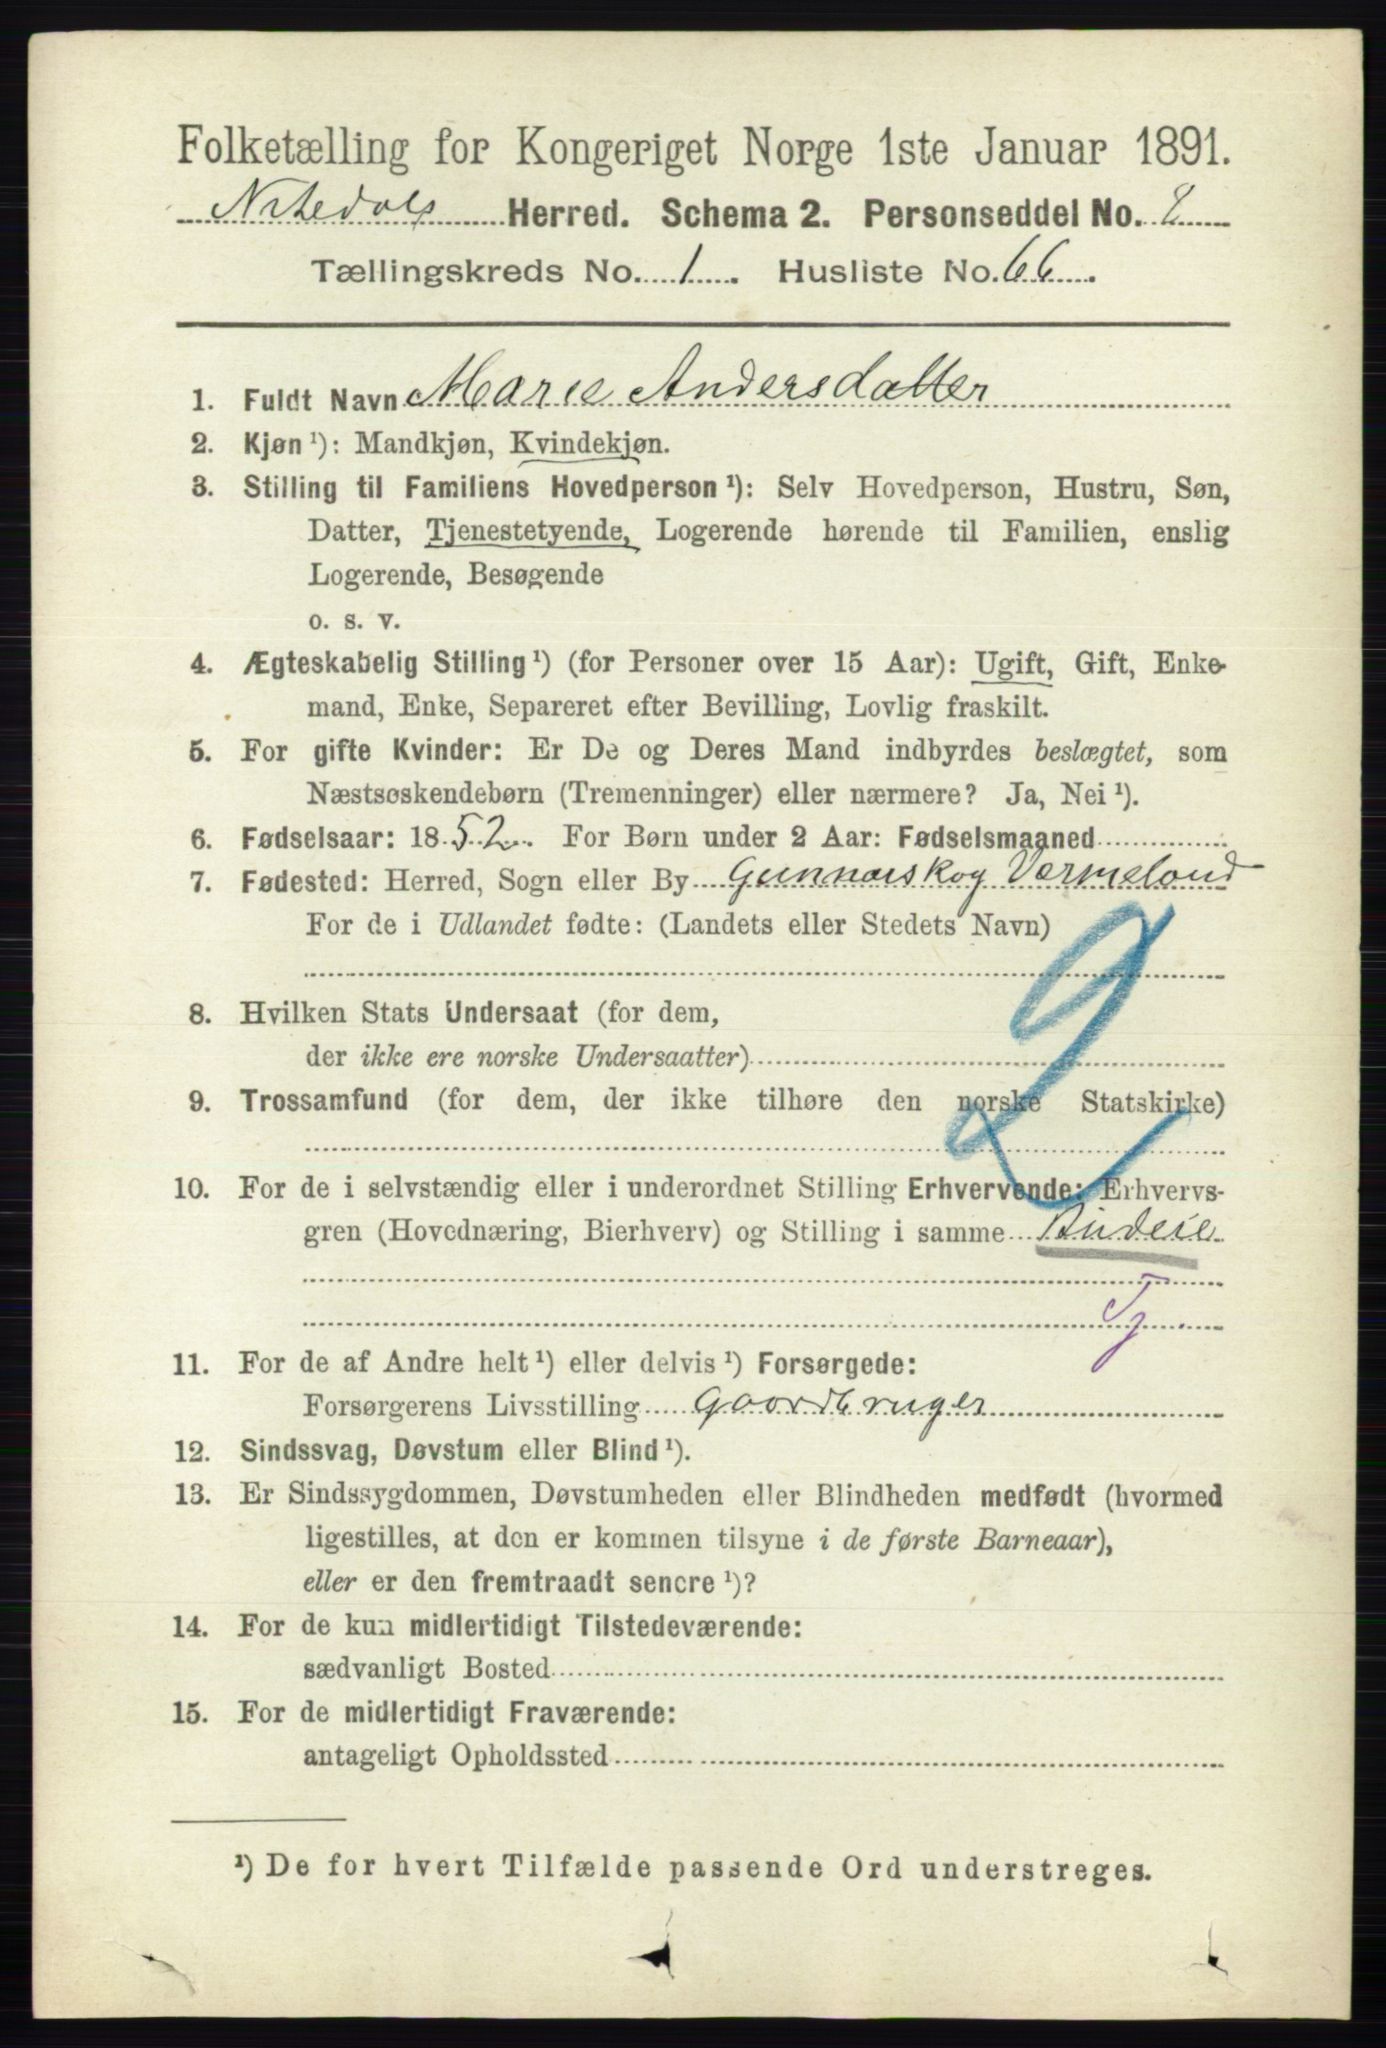 Folketælling for Kongeriget Norge 1ste Januar 1891.
Nitedals Herred. Schema 2. Personseddel No.
Tællingskreds No. 1. Husliste No. 66.
1. Fuldt Navn Marie Andersdatter
2. Kjøn ¹): Mandkjøn, Kvindekjøn.
3. Stilling til Familiens Hovedperson ¹): Selv Hovedperson, Hustru, Søn,
Datter, Tjenestetyende, Logerende hørende til Familien, enslig
Logerende, Besøgende
o. s. v.
4. Ægteskabelig Stilling ¹) (for Personer over 15 Aar): Ugift, Gift, Enke-
mand, Enke, Separeret efter Bevilling, Lovlig fraskilt.
5. For gifte Kvinder: Er De og Deres Mand indbyrdes beslægtet, som
Næstsøskendebørn (Tremenninger) eller nærmere? Ja, Nei ¹).
6. Fødselsaar: 1852. For Børn under 2 Aar: Fødselsmaaned
7. Fødested: Herred, Sogn eller By Gunnarskog Vermeland
For de i Udlandet fødte: (Landets eller Stedets Navn)
8. Hvilken Stats Undersaat (for dem,
der ikke ere norske Undersaatter)
9. Trossamfund (for dem, der ikke tilhøre den norske Statskirke)
10. For de i selvstændig eller i underordnet Stilling Erhvervende: Erhvervs-
gren (Hovednæring, Bierhverv) og Stilling i samme Budeie
Tj.
11. For de af Andre helt ¹) eller delvis ¹) Forsørgede:
Forsørgerens Livsstilling Gaardbruger
12. Sindssvag, Døvstum eller Blind ¹).
13. Er Sindssygdommen, Døvstumheden eller Blindheden medfødt (hvormed
ligestilles, at den er kommen tilsyne i de første Barneaar),
eller er den fremtraadt senere ¹)?
14. For de kun midlertidigt Tilstedeværende:
sædvanligt Bosted
15. For de midlertidigt Fraværende:
antageligt Opholdssted
¹) De for hvert Tilfælde passende Ord understreges.